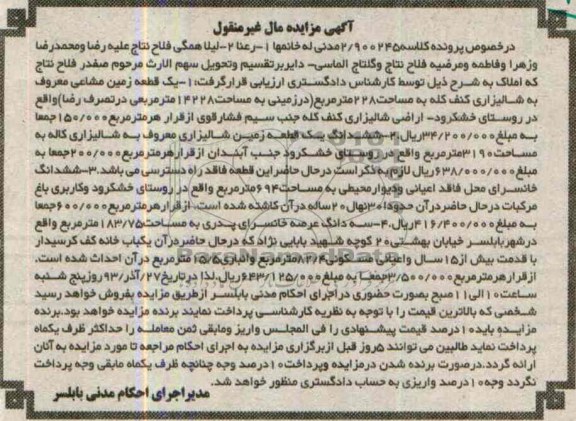 آگهی مزایده مال غیرمنقول
درخصوص پرونده کلاسه ۲/۹۰۰۲۴۵مدنی له خانمها ۱-رعنا ۲-لیلا همگی فلاح نتاج علیه رضا ومحمدرضا
وزهرا وفاطمه ومرضیه فلاح نتاج وگلتاج الماسی- دایربرتقسیم وتحویل سهم الارث مرحوم صفدر فلاح نتاج
که املاک به شرح ذیل توسط کارشناس دادگستری ارزیابی قرارگرفت:۱-یک قطعه زمین مشاعی معروف
به شالیزاری کنف کله به مساحت۲۲۸مترمربع(درزمینی به مساحت۱۴۲۲۸مترمربعی درتصرف رضا)واقع
در روستای خشکرود- اراضی شالیزاری کنف کله جنب سیم فشارقوی ازقرار هرمترمربع۱۵۰/۰۰۰جمعا
به مبلغ۳۴/۲۰۰/۰۰۰ریال،۲-ششدانگ یک قطعه زمین شالیزاری معروف به شالیزاری کاله به
مساحت۳۱۹۰مترمربع واقع در روستای خشکرود جنب آببندان ازقرارهرمترمربع۲۰۰/۰۰۰جمعا به
مبلغ۶۳۸/۰۰۰/۰۰۰ریال لازم به ذکراست درحال حاضراین قطعه فاقد راه دسترسی می باشد.۳-ششدانگ
خانسرای محل فاقد اعیانی ودیوارمحیطی به مساحت۶۹۴مترمربع واقع در روستای خشکرود وکاربری باغ
مرکبات درحال حاضردرآن حدودا۳۰نهال۲۰ساله درآن کاشته شده است. ازقرارهرمترمربع۶۰۰/۰۰۰جمعا
به مبلغ۴۱۶/۴۰۰/۰۰۰ریال.۴-سه دانگ عرصه خانسرای پدری به مساحت۱۸۳/۷۵مترمربع واقع
درشهربابلسر خیابان بهشتی۲۰ کوچه شهید بابایی نژاد که درحال حاضردرآن یکباب خانه کف کرسیدار
با قدمت بیش از۱۵سال واعیانی مسکونی۸۳/۴مترمربع وانباری۱۵/۵مترمربع درآن احداث شده است.
ازقرارهرمترمربع۳/۵۰۰/۰۰۰جمعا به مبلغ۶۴۳/۱۲۵/۰۰۰ریال.لذا درتاریخ۲۷/آذر/۹۳روزپنج شنبه
ساعت۱۰الی۱۱صبح بصورت حضوری دراجرای احکام مدنی بابلسر ازطریق مزایده بفروش خواهد رسید
شخصی که بالاترین قیمت را با توجه به نظریه کارشناسی پرداخت نمایند برنده مزایده خواهد بود.برنده
مزایده باید۱۰درصد قیمت پیشنهادی را فی المجلس واریز ومابقی ثمن معامله را حداکثر ظرف یکماه
پرداخت نماید طالبین می توانند ۵روز قبل ازبرگزاری مزایده به اجرای احکام مراجعه تا مورد مزایده به آنان
ارائه گردد.درصورت برنده شدن درمزایده وپرداخت۱۰درصد وجه چنانچه ظرف یکماه مابقی وجه پرداخت
نگردد وجه۱۰درصد واریزی به حساب دادگستری منظور خواهد شد.
مدیراجرای احکام مدنی بابلسر